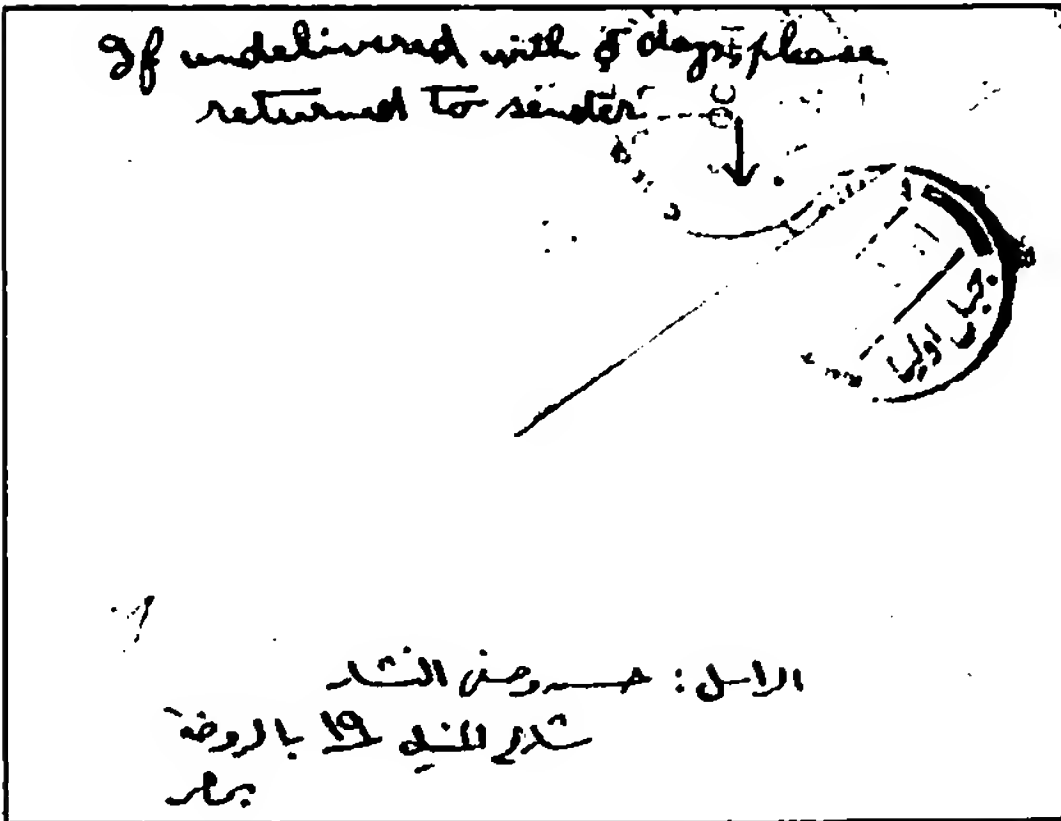 If undelivered with 5 days, please
returned to sender
جبل اوليا
الراسل : حسن وصفى النشار
شارع المنيل ١٩ بالروضة
بمصر